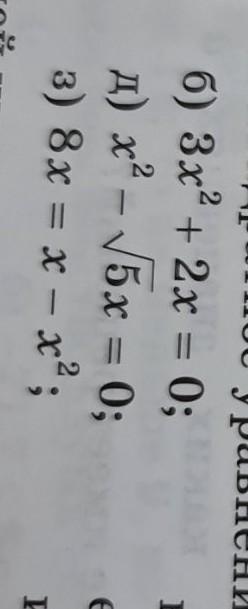 у равнени
б) 3x² + 2x = 0;
д) x² − √5x = 0;
з) 8x = x − x²;